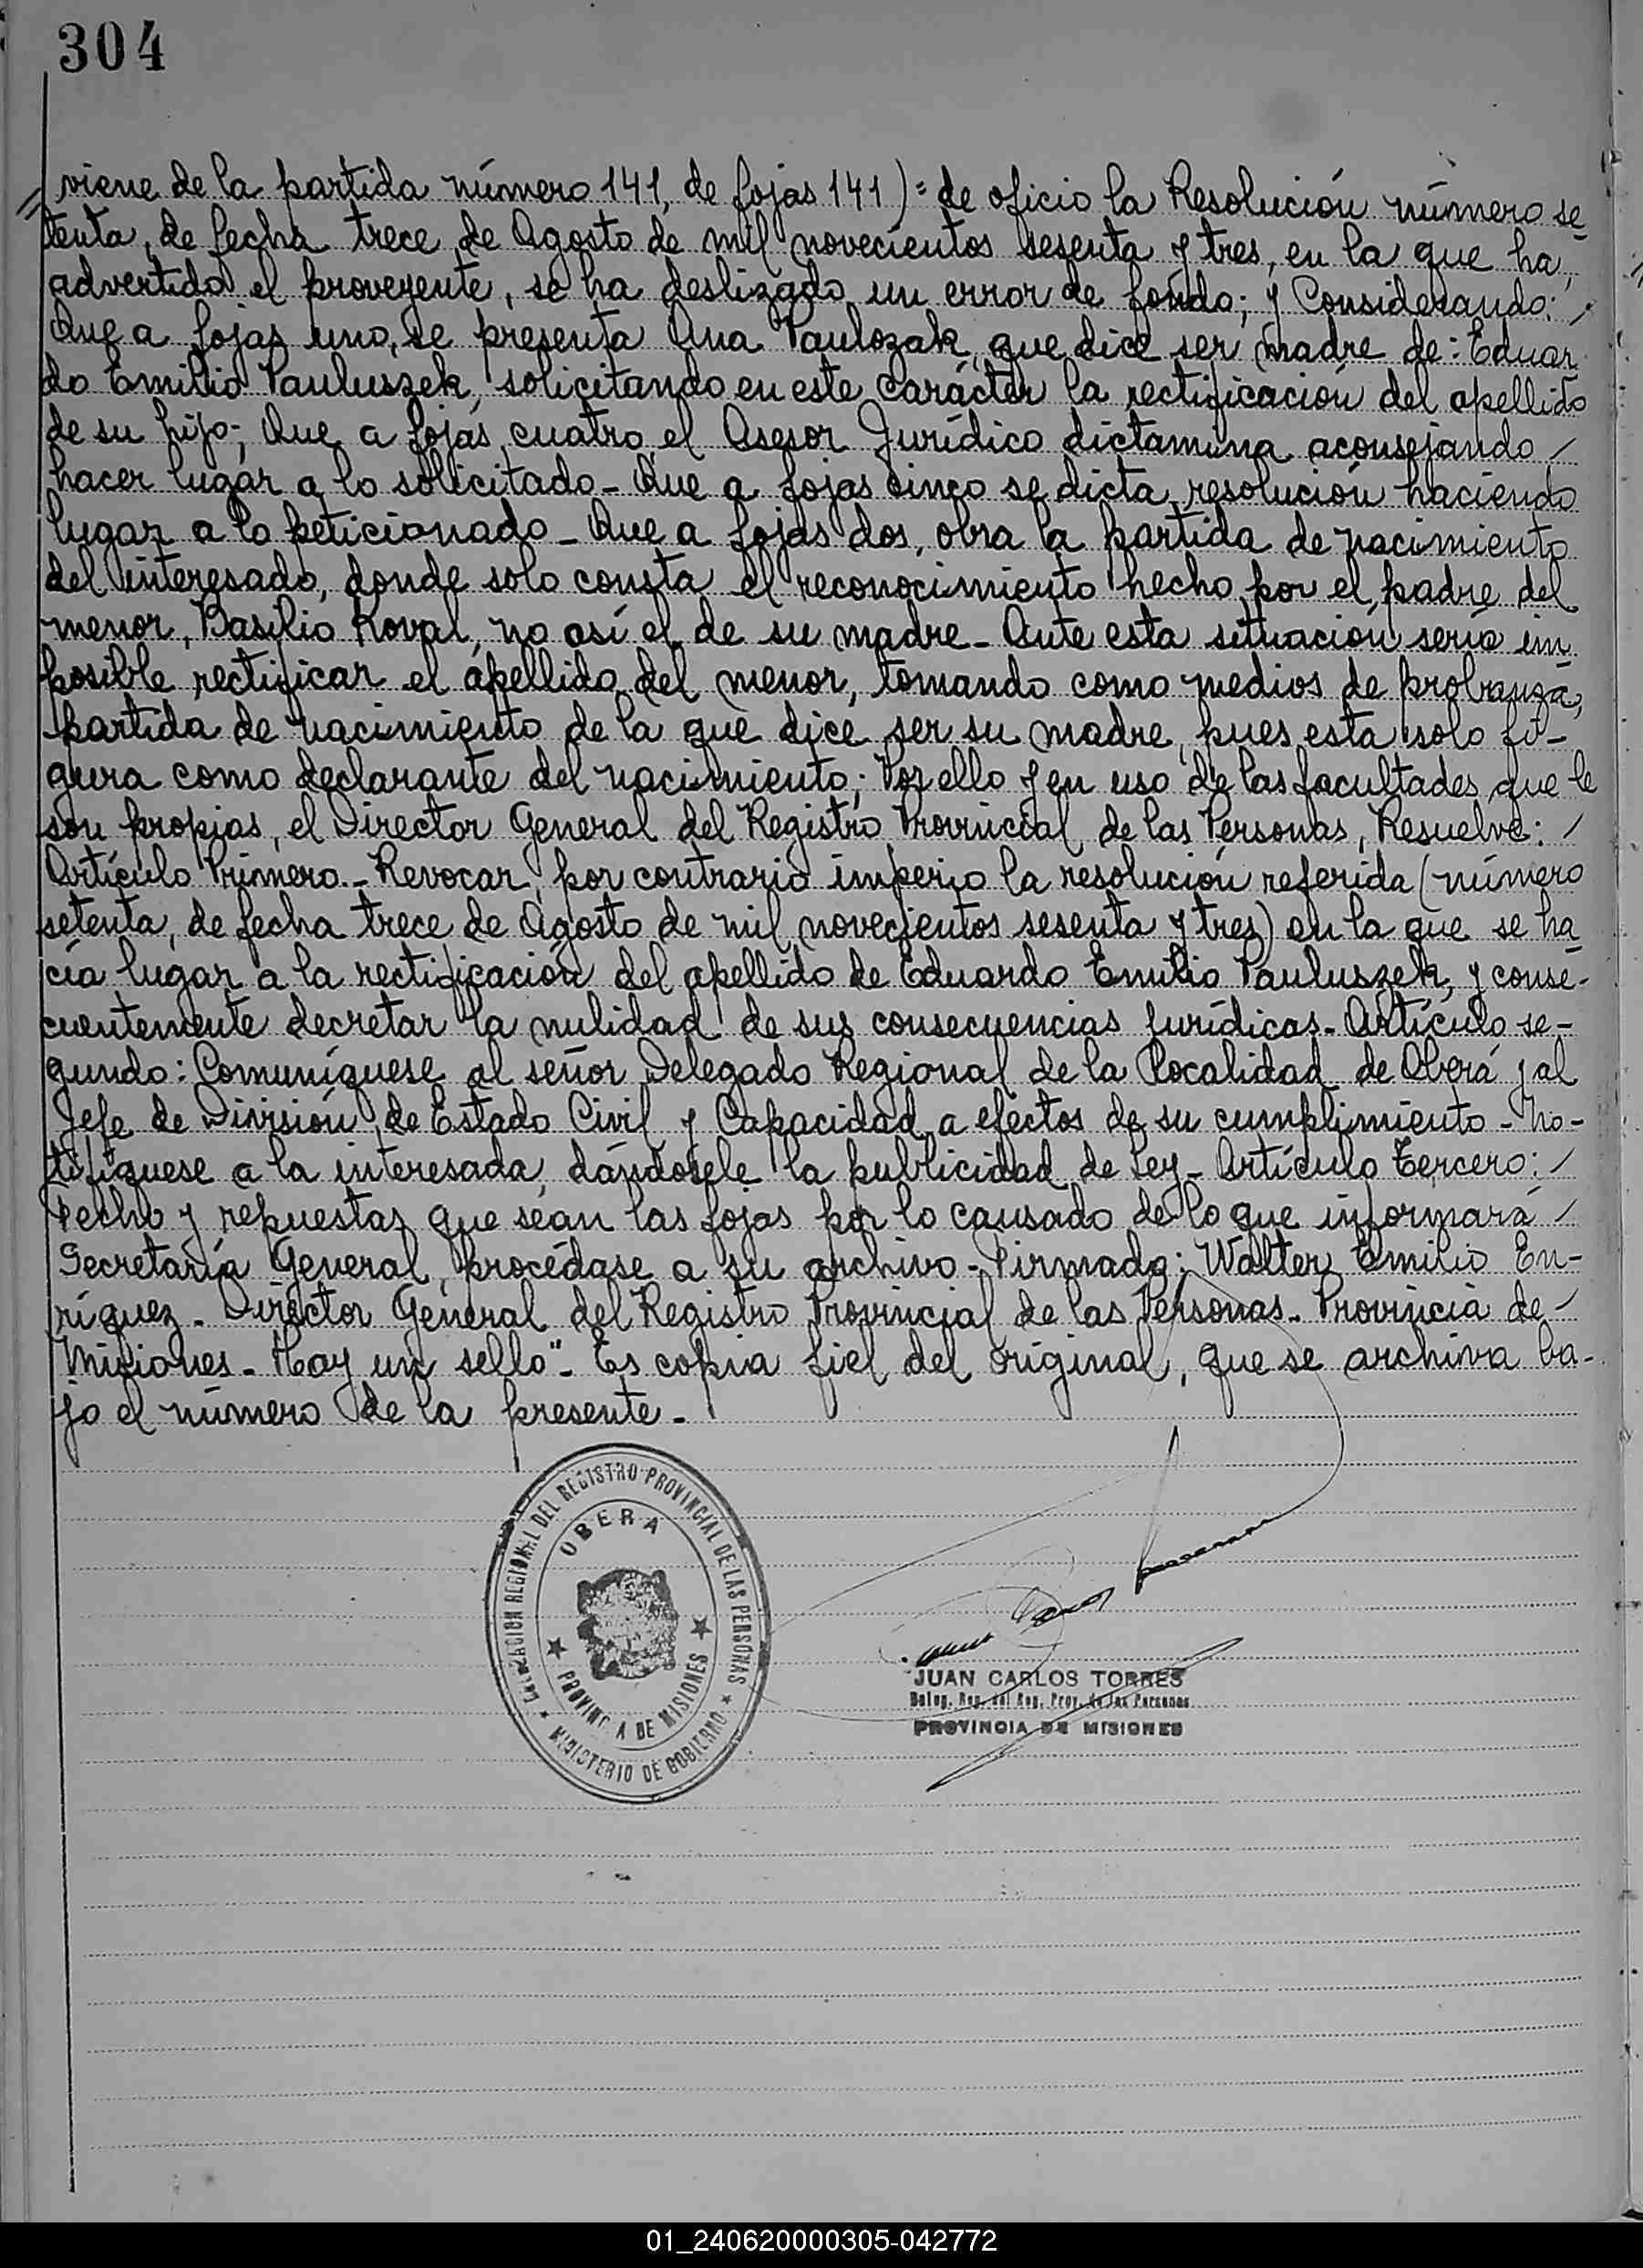 304
viene de la partida número 141, de fojas 141) = de oficio la Resolución número se
tenta, de fecha trece de Agosto de mil novecientos sesenta y tres, en la que ha
advertido el proveyente, se ha deslizado un error de fondo; y Considerando: /
Que a fojas uno, se presenta Ana Paulozak, que dice ser madre de: Eduar
do Emilio Pauluszek, solicitando en este carácter la rectificación del apellido
de su hijo; Que a fojas cuatro el Asesor Jurídico dictamina aconsejando /
hacer lugar a lo solicitado - Que a fojas cinco se dicta resolución haciendo
lugar a lo peticionado - Que a fojas dos, obra la partida de nacimiento
del interesado, donde solo consta el reconocimiento hecho por el padre del
menor, Basilio Koval, no así el de su madre - Ante esta situación sería im
posible rectificar el apellido del menor, tomando como medios de probranza,
partida de nacimiento de la que dice ser su madre, pues esta solo fi-
gura como declarante del nacimiento; Por ello y en uso de las facultades que le
son propias, el Director General del Registro Provincial de las Personas, Resuelve: /
Artículo Primero.- Revocar, por contrario imperio la resolución referida (número
setenta, de fecha trece de Agosto de mil novecientos sesenta y tres) en la que se ha
cía lugar a la rectificación del apellido de Eduardo Emilio Pauluszek, y conse-
cuentemente decretar la nulidad de sus consecuencias jurídicas - Artículo se-
gundo: Comuníquese al señor Delegado Regional de la Localidad de Oberá y al
Jefe de División de Estado Civil y Capacidad a efectos de su cumplimiento - No-
tifíquese a la interesada, dándosele la publicidad de Ley - Artículo Tercero: /
Fecho y repuestas que sean las fojas por lo causado de lo que informará /
Secretaría General, procédase a su archivo - Firmado: Walter Emilio En-
ríquez - Director General del Registro Provincial de las Personas - Provincia de /
Misiones - Hay un sello" - Es copia fiel del original, que se archiva ba-
jo el número de la presente -
DELEGACION REGIONAL DEL REGISTRO PROVINCIAL DE LAS PERSONAS
OBERA
PROVINCIA DE MISIONES
MINISTERIO DE GOBIERNO
JUAN CARLOS TORRES
Deleg. Reg. del Reg. Prov. de las Personas
PROVINCIA DE MISIONES
01_240620000305-042772